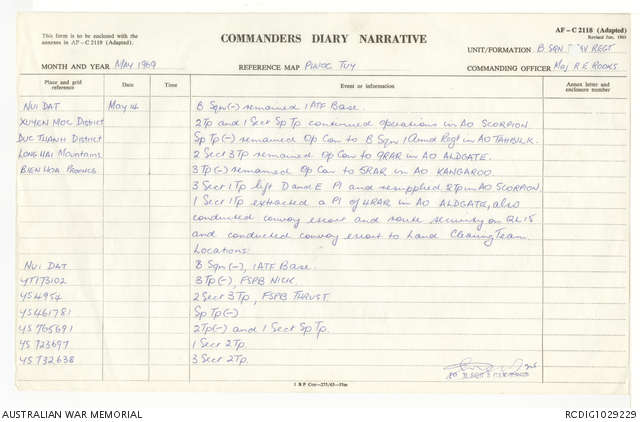 This form is to be enclosed with the
annexes in AF - C 2118 (Adapted).
COMMANDERS DIARY NARRATIVE
AF - C 2118 (Adapted)
Revised Jun, 1965
UNIT/FORMATION B SQN 3 CAV REGT
MONTH AND YEAR MAY 1969
REFERENCE MAP PHUOC TUY
COMMANDING OFFICER Maj R.E ROOKS
Place and grid reference Date Time Event or information Annex letter and enclosure number
NUI DAT May 14 B Sqn(-) remained 1ATF Base.
XUYEN MOC District 2Tp and 1 Sect Sp Tp continued operations in AO SCORPION.
DUC THANH District Sp Tp(-) remained Op Con to B Sqn 1 Armd Regt in AO TAHBILK.
LONG HAI Mountains 2 Sect 3Tp remained Op Con to 9RAR in AO ALDGATE.
BIEN HOA Province 3Tp(-) remained Op Con to 5RAR in AO KANGAROO.
3 Sect 1Tp lift D and E Pl and resupplied 2Tp in AO SCORPION.
1 Sect 1Tp extracted a Pl of 4RAR in AO ALDGATE, also
conducted convoy escort and route security on QL15
and conducted convoy escort to Land Clearing Team.
Locations:
NUI DAT B Sqn(-), 1ATF Base.
YT173102 3Tp(-), FSPB NICK.
YS4954 2 Sect 3Tp, FSPB THRUST.
YS461781 Sp Tp(-)
YS765691 2Tp(-) and 1 Sect Sp Tp.
YS723697 1 Sect 2Tp.
YS732638 3 Sect 2Tp.
1 B P Coy—275/65—35m
AUSTRALIAN WAR MEMORIAL
RCDIG1029229